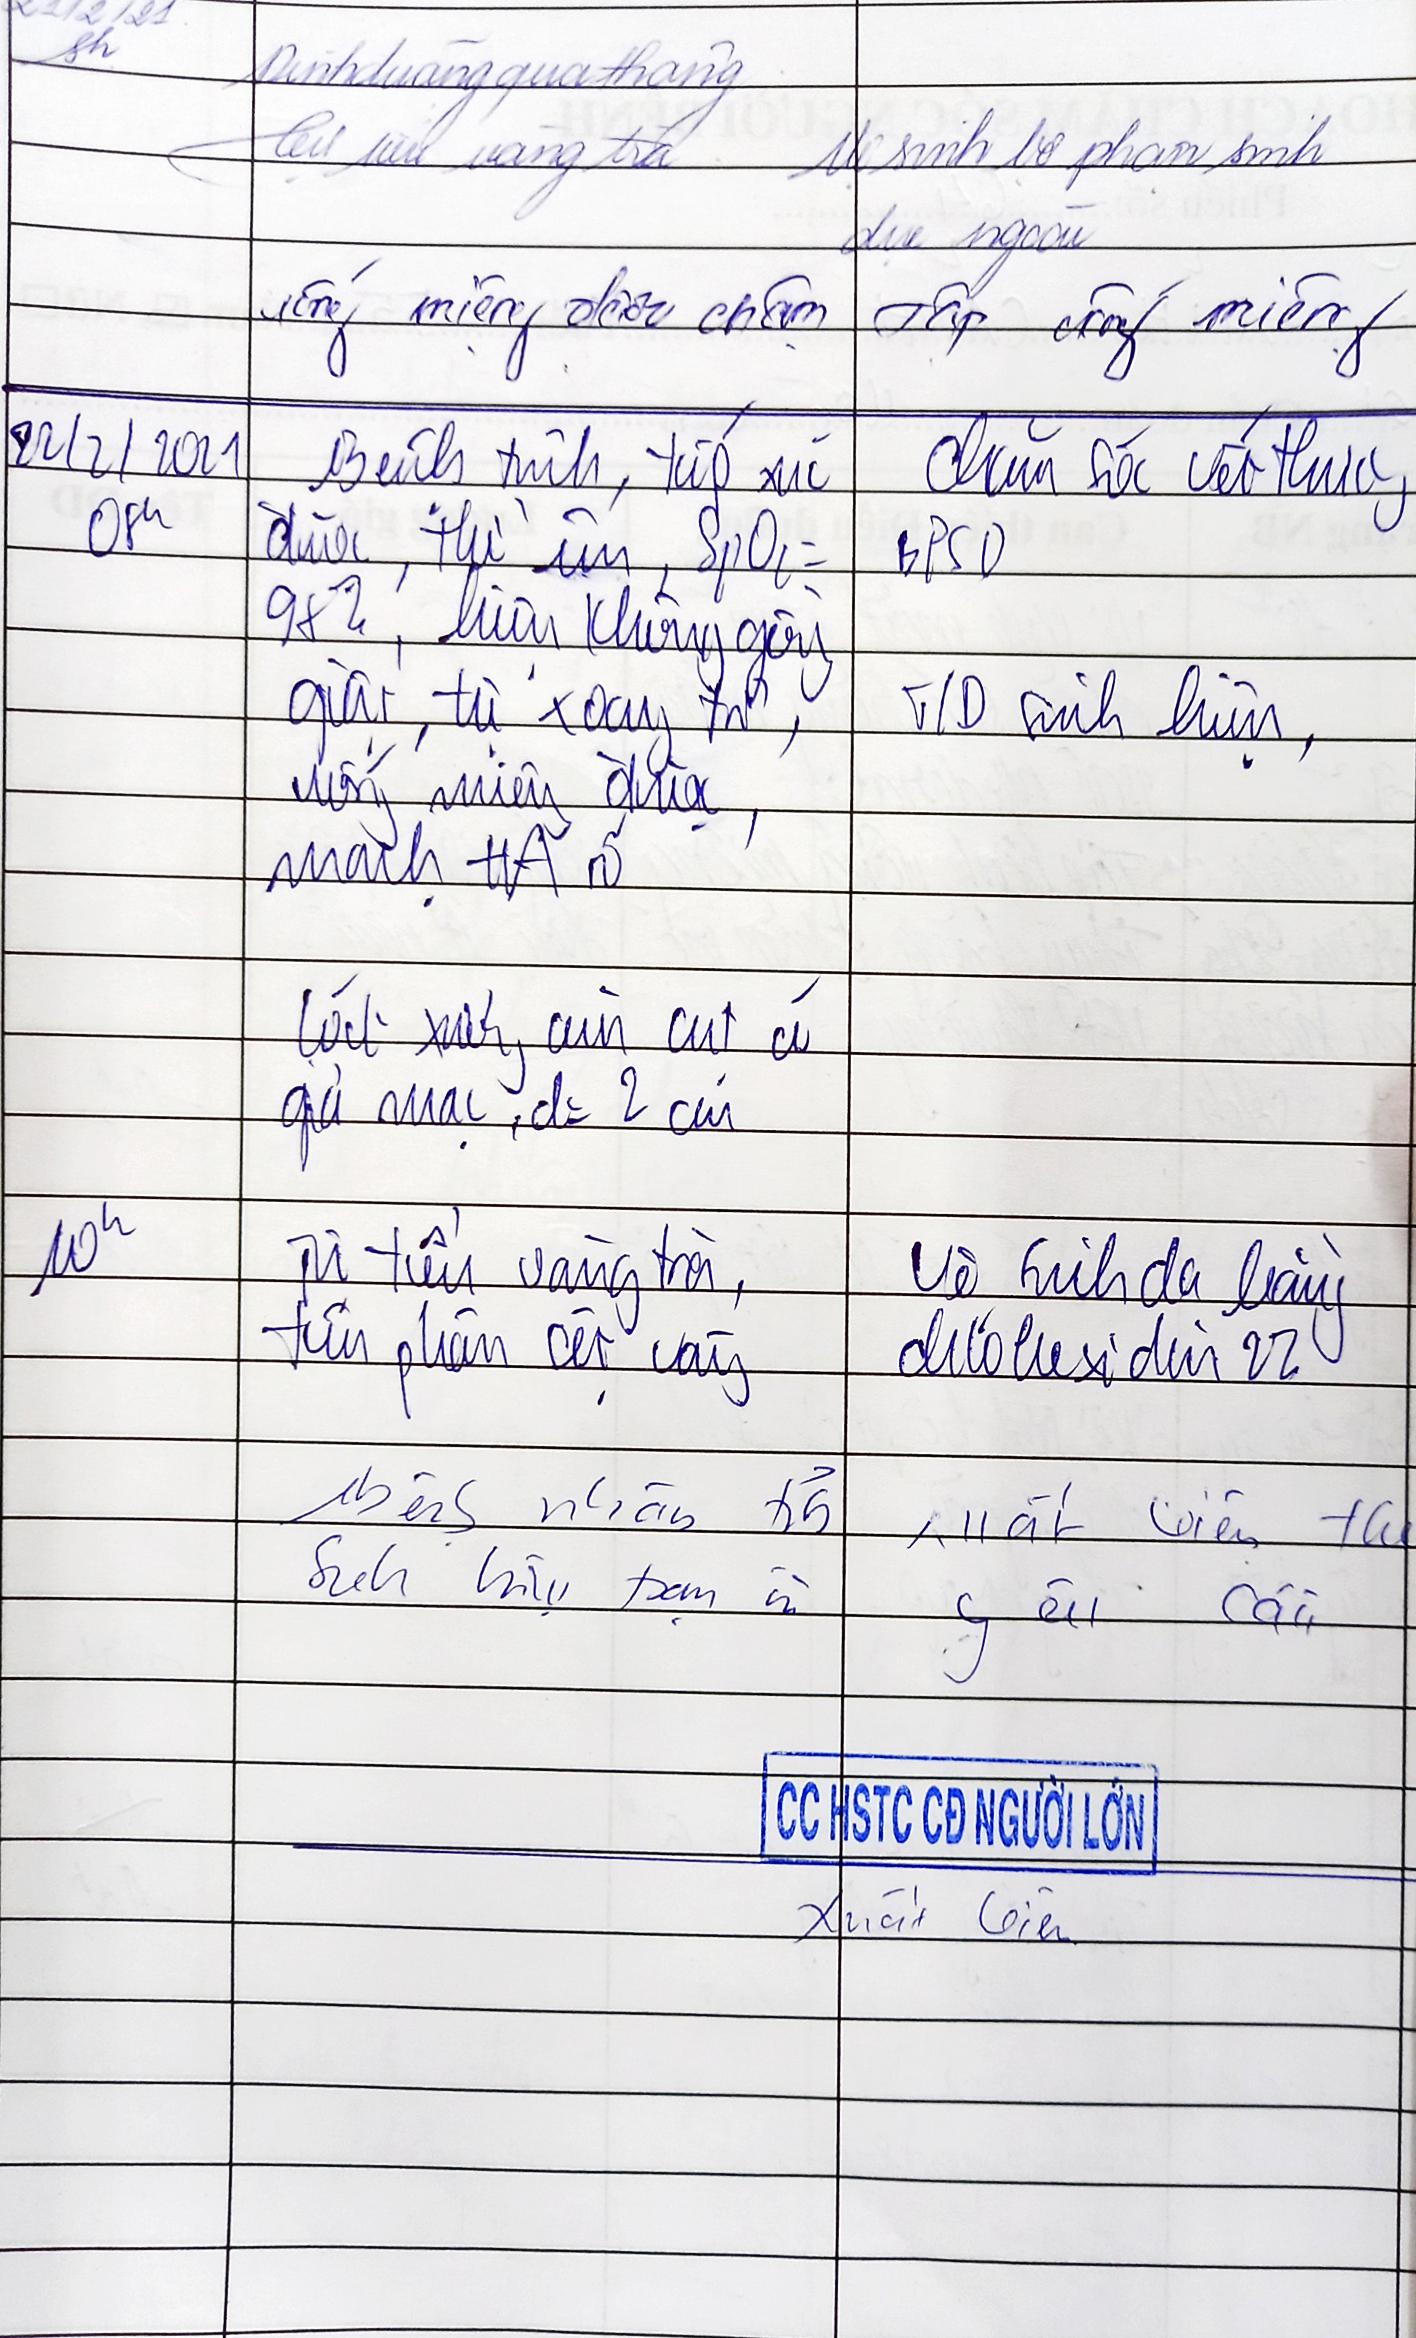 21/2/21
8h
Dinh dưỡng qua thông
tiểu vàng trà
Vệ sinh bộ phận sinh
dục ngoài
uống miệng được chậm
Tập uống miệng
22/2/2021
08h
Bệnh tỉnh, tiếp xúc
được, thở êm, SpO2=
98%, hiện không gồng
giật, tự xoay trở,
uống miệng được,
mạch HA rõ
Chăm sóc vết thương
BPSD
T/D sinh hiệu,
Loét xương cùn cụt có
giả mạc, d= 2 cm
10h
đi tiểu vàng trà,
tiêu phân sệt vàng
Vệ sinh da bằng
chlohexidin 2%
Bệnh nhân
Sinh hiệu tạm ổn
xuất viện
yêu cầu
CC HSTC CĐ NGƯỜI LỚN
Xuất viện